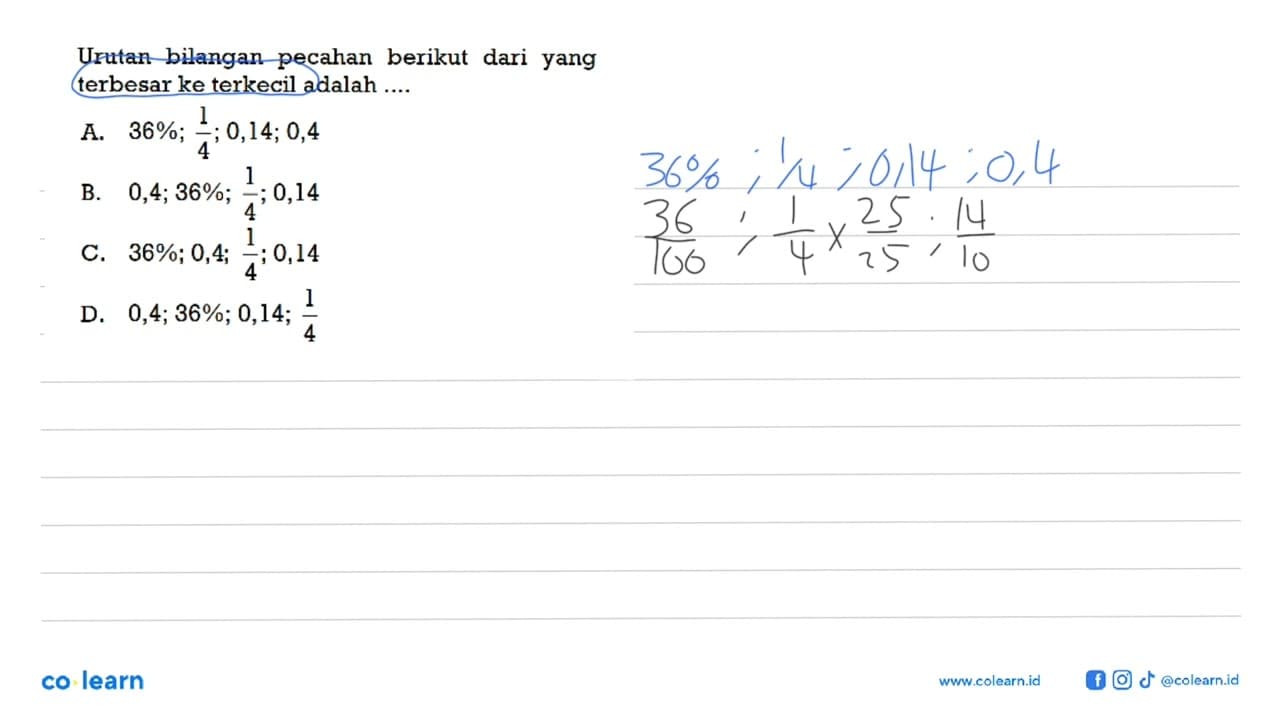 Urutan bilangan pecahan berikut dari yang
terbesar ke terkecil adalah ....
A. 36%; 1/4; 0,14; 0,4
B. 0,4; 36%; 1/4; 0,14
C. 36%; 0,4; 1/4; 0,14
D. 0,4; 36%; 0,14; 1/4
36% ; 1/4 ; 0,14 ; 0,4
36/100 ; 1/4 × 25/25 ; 14/10
co learn
www.colearn.id
@colearn.id